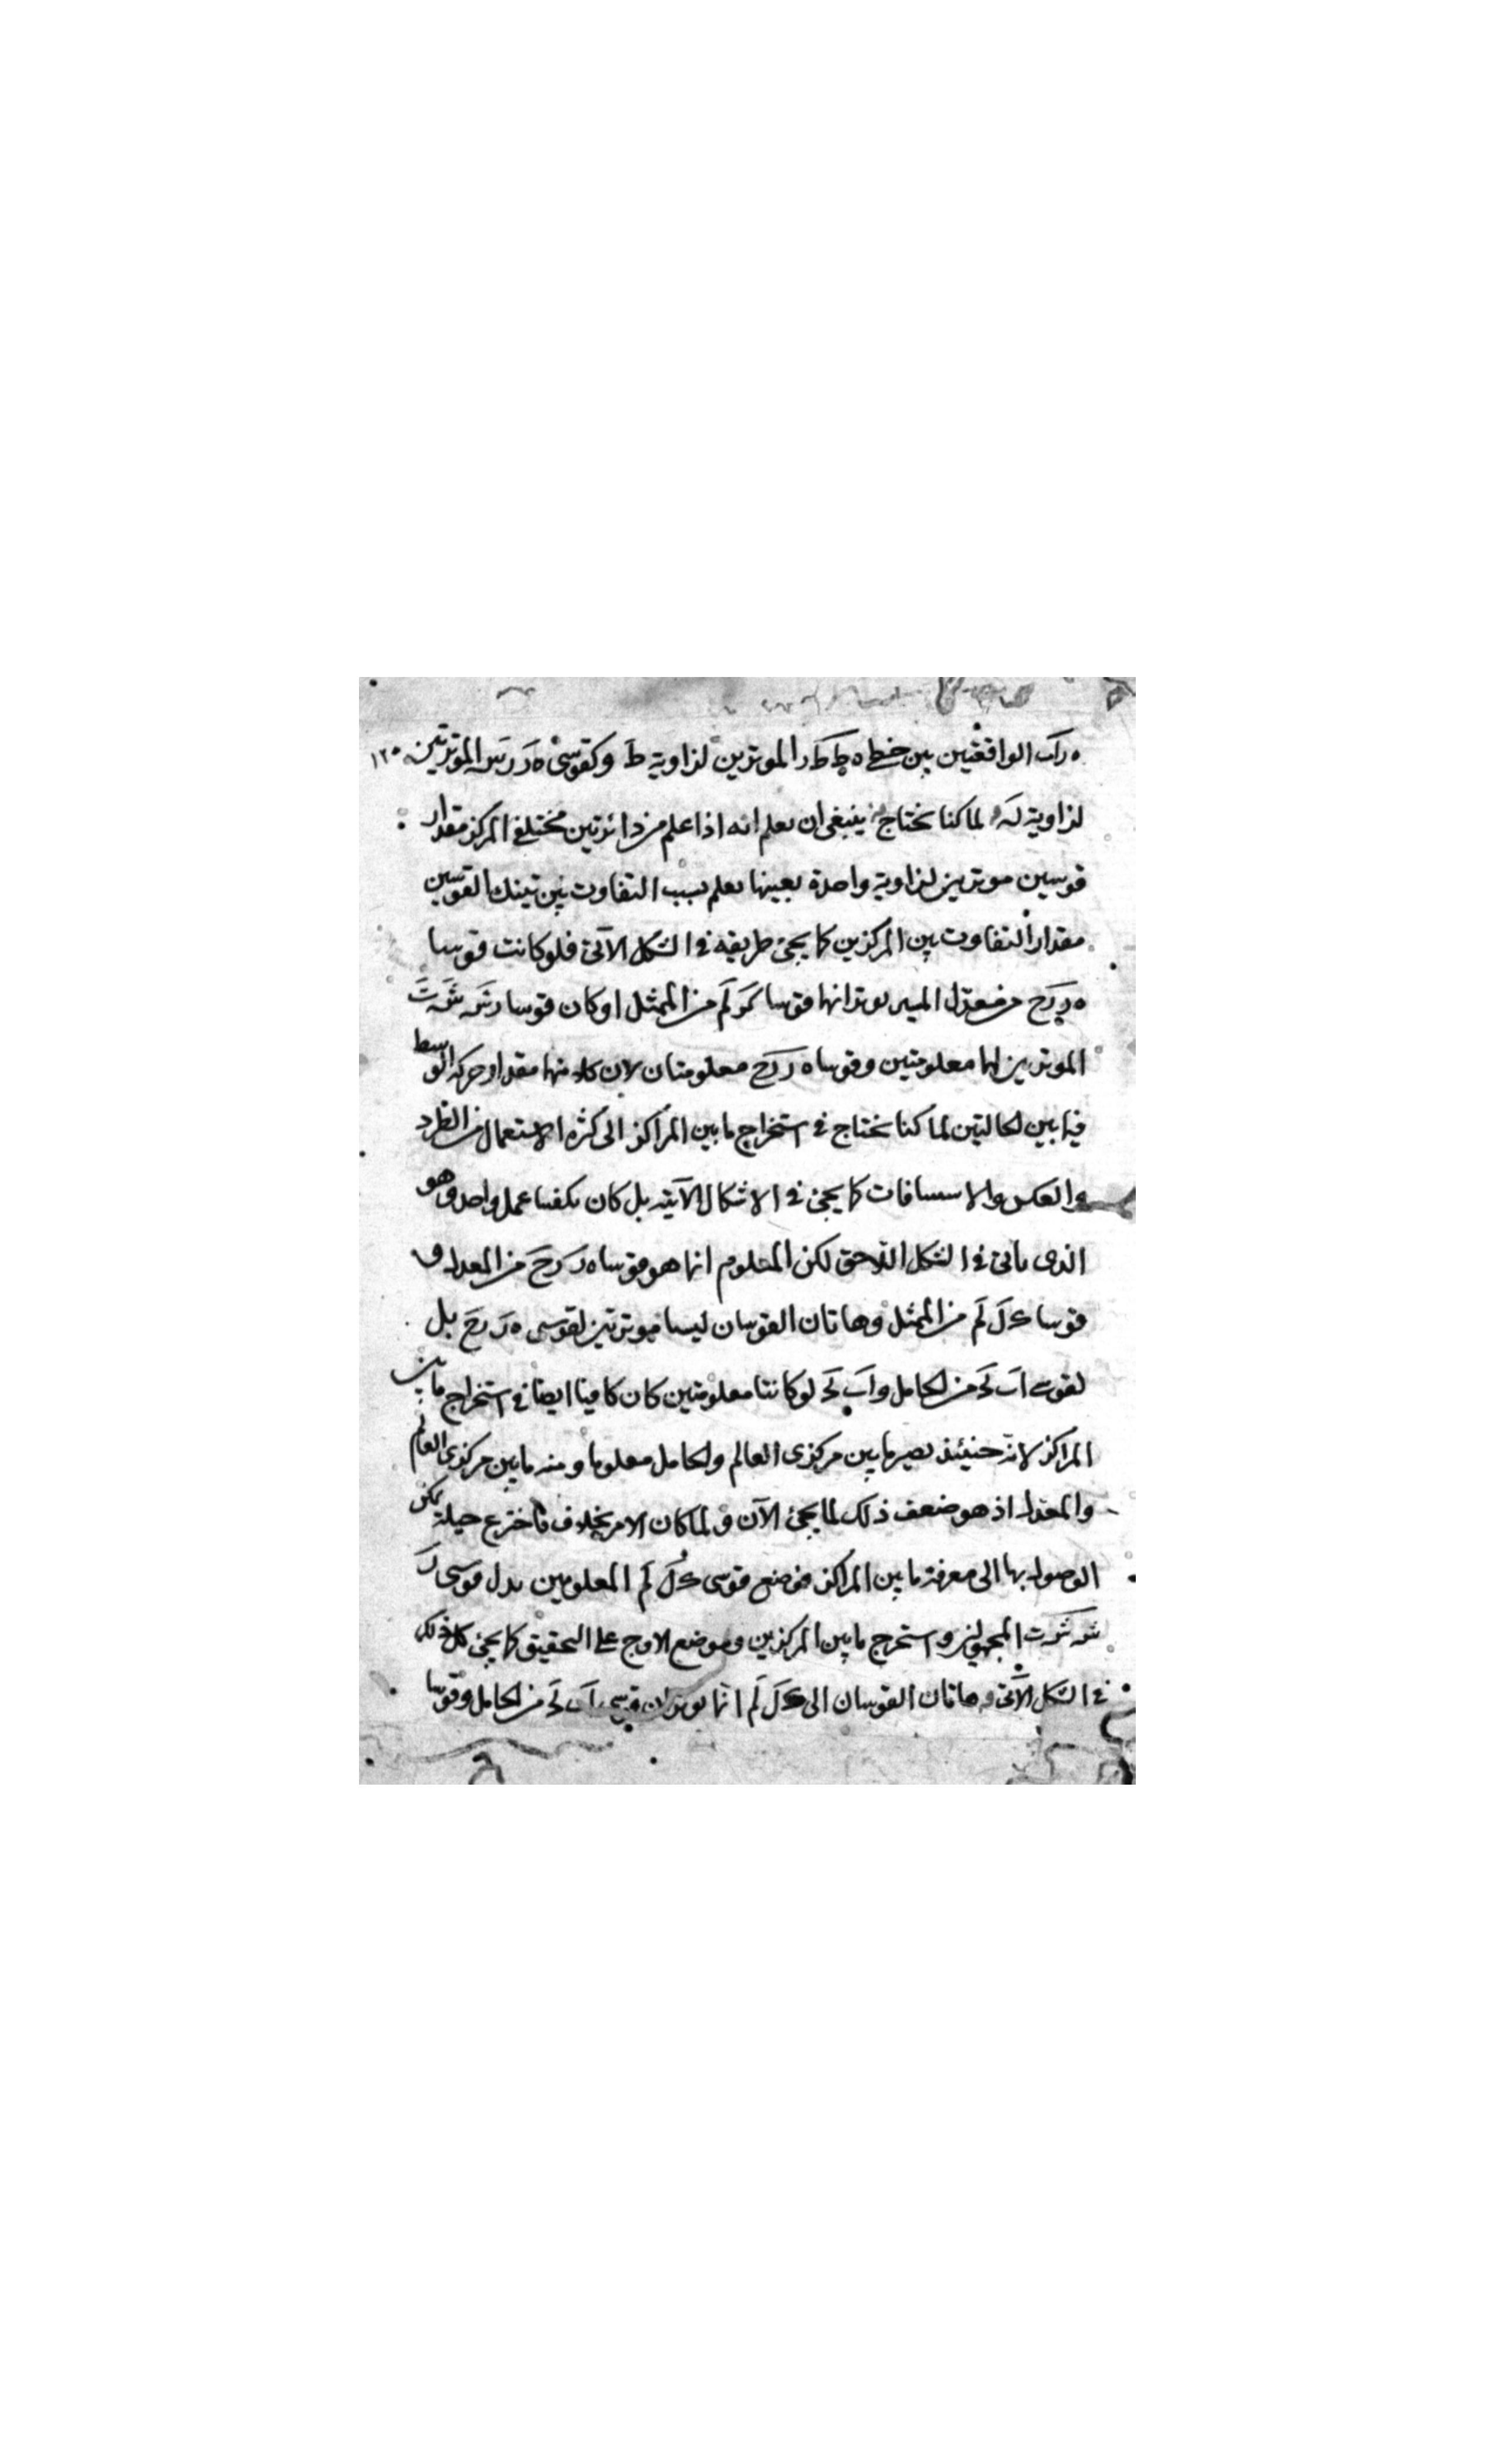 ه ر اب الواقعتين بين خطى ه ط ط ر الموترين لزاوية ط وكقوسى ه ر ر س الموترتين ١٢٥
لزاوية له لما كنا نحتاج ينبغى ان يعلم انه اذا علم من دائرتين مختلفى المركز مقدار
قوسين موترين لزاوية واحدة بعينها يعلم بسبب التفاوت بين تينك القوسين
مقدار التفاوت بين المركزين كما يجئ طريقه فى الشكل الآتى فلو كانت قوسا
ه ر ر ح من معدل المسير يوترانها قوسا لم من الممثل او كان قوسا
الموترين لهما معلومتين وقوسا ه ر ر ح معلومتان لان كلا منهما مقدار حركة الوسط
فيما بين الحالتين لما كنا نحتاج فى استخراج ما بين المراكز الى كثرة الاستعمال من الطرد
والعكس كما يجئ فى الاشكال الآتية بل كان يكفينا عمل واحد وهو
الذى ياتى فى الشكل اللاحق لكن المعلوم انما هو قوسا ه ر ر ح من المعدل و
قوسا ك ل ل م من الممثل وهاتان القوسان ليسا موترتين لقوسى ه ر ر ح بل
لقوسى ا ب ب ح من الحامل و ا ب ب ح لو كانتا معلومتين كان كافيا ايضا فى استخراج ما بين
المراكز لانه حينئذ يصير ما بين مركزى العالم والحامل معلوما ومنه ما بين مركزى العالم
والمعدل اذ هو ضعف ذلك لما يجئ الآن ولما كان الامر بخلاف فاخترع حيلة يمكن
الوصول بها الى معرفة ما بين المراكز فوضع قوسى ك ل ل م المعلومين بدل قوسى ر
المجهولين واستخرج ما بين المركزين وموضع الاوج على التحقيق كما يجئ كل ذلك
فى الشكل الآتى وهاتان القوسان اى ك ل ل م انما يوتران قوسى ا ب ب ح من الحامل وقوسا